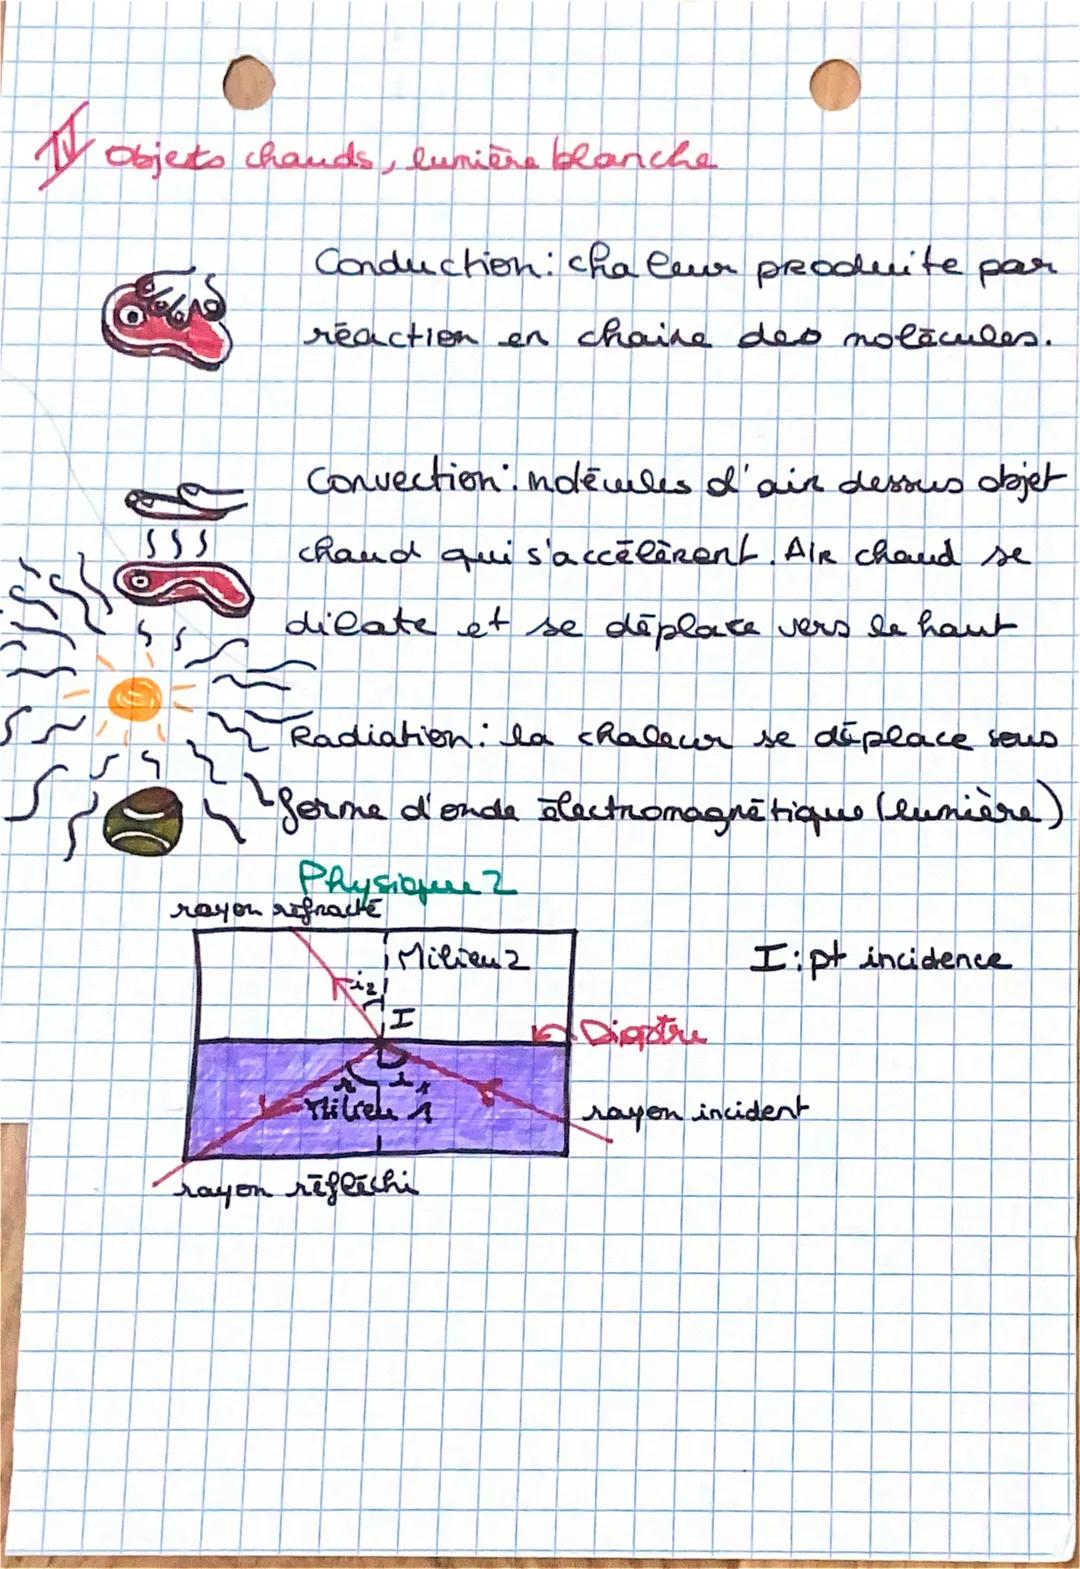 IV Objets chauds, lumière blanche
Conduction: chaleur produite par
réaction en chaine des molécules.
Convection: molécules d'air dessus objet
chaud qui s'accélèrent. Air chaud se
dilate et se déplace vers le haut
Radiation: la chaleur se déplace sous
forme d'onde électromagnétique (lumière)
Physique 2
rayon réfracté
Milieu 2
I: pt incidence
i2
I
Dioptre
r
i1
Milieu 1
rayon incident
rayon réfléchi